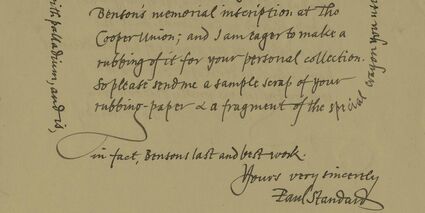 Benson's memorial inscription at the
Cooper Union; and I am eager to make a
rubbing of it for your personal collection.
So please send me a sample scrap of your
rubbing-paper & a fragment of the special
crayon
in fact, Benson's last and best work.
Yours very sincerely
Paul Standard
with palladium, and is,